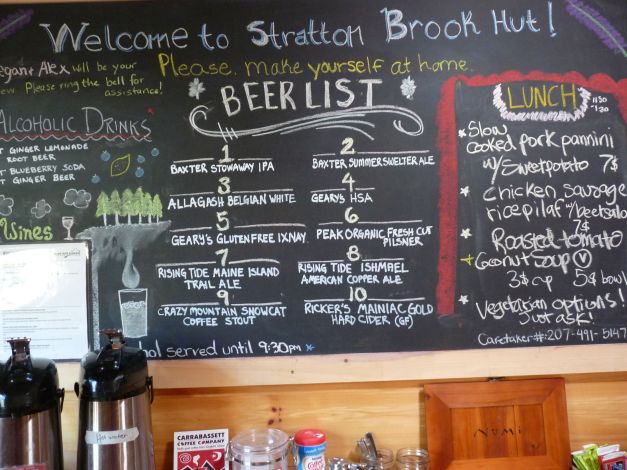 Welcome to Stratton Brook Hut!
Alex will be your
Please ring the bell for
assistance!
Please, make yourself at home.
BEER LIST
1
BAXTER STOWAWAY IPA
2
BAXTER SUMMER SWELTER ALE
3
ALLAGASH BELGIAN WHITE
4
GEARY'S HSA
5
GEARY'S GLUTEN FREE IXNAY
6
PEAK ORGANIC FRESH CUT
PILSNER
7
RISING TIDE MAINE ISLAND
TRAIL ALE
8
RISING TIDE ISHMAEL
AMERICAN COPPER ALE
9
CRAZY MOUNTAIN SNOWCAT
COFFEE STOUT
10
RICKER'S MAINIAC GOLD
HARD CIDER (GF)
served until 9:30pm
ALCOHOLIC DRINKS
GINGER LEMONADE
ROOT BEER
BLUEBERRY SODA
GINGER BEER
Wines
LUNCH
11:30
-1:30
Slow
cooked pork pannini
w/ Sweetpotato 7$
chicken sausage
rice pilaf w/ beet salad
7$
Roasted tomato
Coconut soup V
3$ cup 5$ bowl
Vegetarian options!
Just ask!
Caretaker#: 207-491-5147
Hot water
CARRABASSETT
COFFEE COMPANY
NUMI